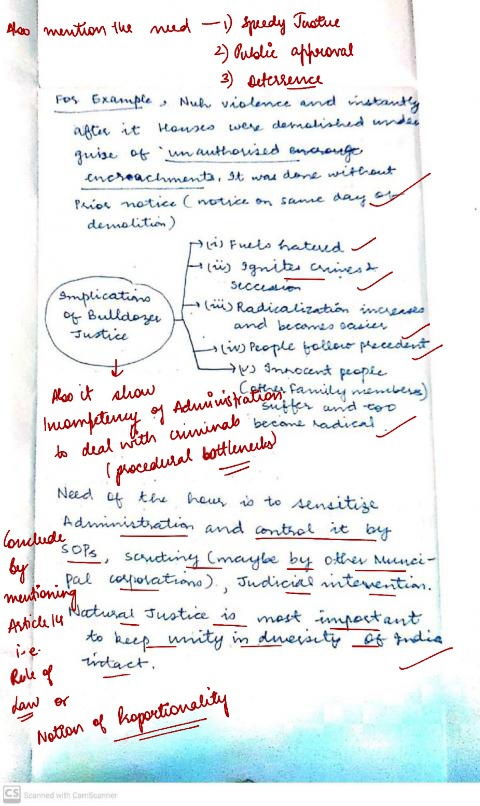 Also mention the need — 1) Speedy Justice
2) Public approval
3) Deterrence
For Example, Nuh violence and instantly
after it Houses were demolished under
guise of 'unauthorised
encroachments. It was done without
Prior notice (notice on same day of
demolition)
Implications
of Bulldozer
Justice
(i) Fuels hatered
(ii) Ignites crimes &
seccession
(iii) Radicalization increases
and becomes easier
(iv) People follow precedent
(v) Innocent people
(other family members)
suffer and too
become radical.
Also it show
Incomptency of Administration
to deal with criminals
(procedural bottlenecks)
Need of the hour is to sensitize
Administration and control it by
SOPs, scrutiny (maybe by other Munci-
pal corporations), Judicial intervention.
Natural Justice is most important
to keep unity in diversity of India
intact.
Conclude
by
mentioning
Article 14
i.e.
Rule of
Law or
Notion of Proportionality
CS Scanned with CamScanner